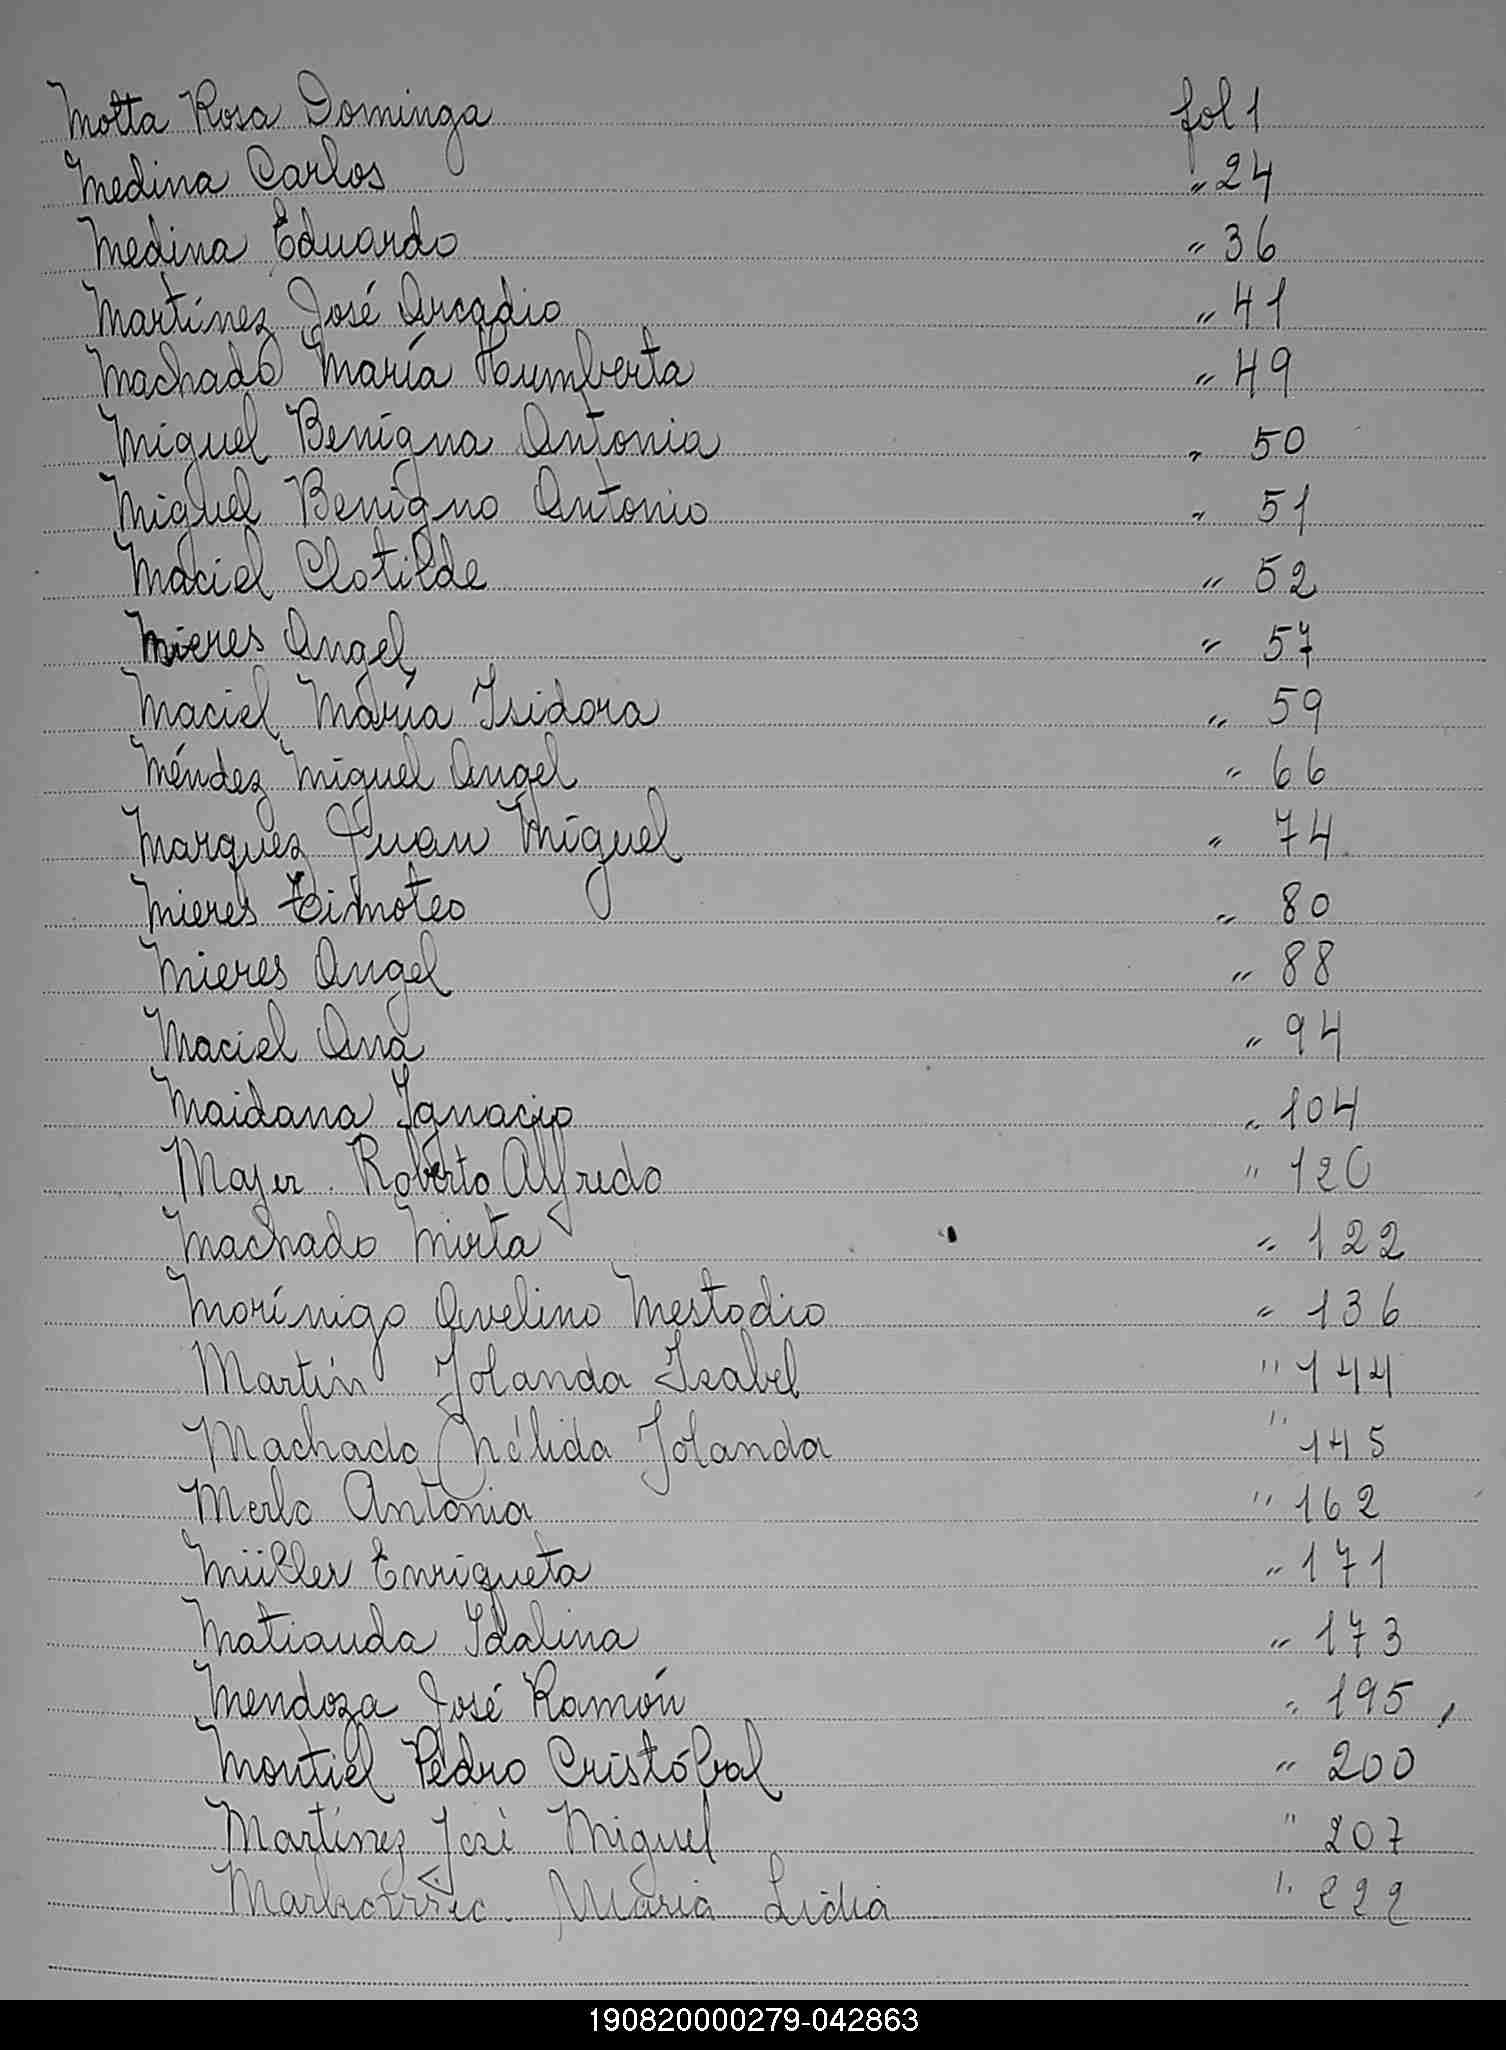 Motta Rosa Dominga fol 1
Medina Carlos " 24
Medina Eduardo " 36
Martínez José Arcadio " 41
Machado María Humberta " 49
Miguel Benigna Antonia " 50
Miguel Benigno Antonio " 51
Maciel Clotilde " 52
Mieres Angel " 57
Maciel María Isidora " 59
Méndez Miguel Angel " 66
Marquez Juan Miguel " 74
Mieres Timoteo " 80
Mieres Angel " 88
Maciel Ana " 94
Maidana Ignacio " 104
Majer Roberto Alfredo " 120
Machado Mirta " 122
Morínigo Avelino Mestodio " 136
Martín Jolanda Isabel " 144
Machado Nélida Jolanda " 145
Merlo Antonia " 162
Müller Enriqueta " 171
Matiauda Idalina " 173
Mendoza José Ramón " 195
Montiel Pedro Cristóbal " 200
Martínez José Miguel " 207
María Lidia " 222
190820000279-042863